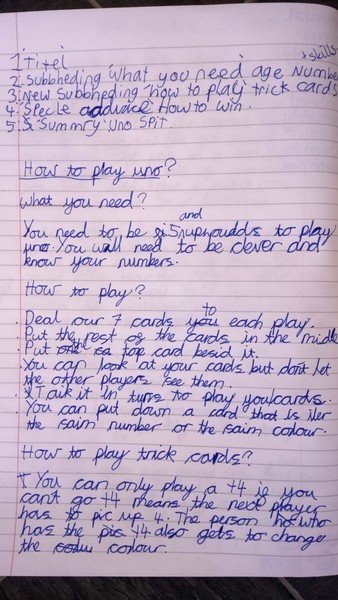 1 Titel
2. subbheding what you need age number + skills
3. New subbheding how to play trick cards
4. Specle adduice How to win.
5. S summry uno spit.
How to play uno?
What you need?
You need to be 5 and upwoudds to play
uno. You wall need to be clever and
know your numbers.
How to play?
. Deal our 7 cards to you each play.
. Put the rest os the cards in the middle
. Put a top card besid it.
. You can look at your cards but dont let
the other players see them.
. Tauk it in turns to play you cards.
. You can put down a card that is iler
the saim number or the saim colour.
How to play trick cards?
You can only play a +4 is you
cant go +4 means the next player
has to pic up 4. The person who
has the pic +4 also gets to change
the colour.